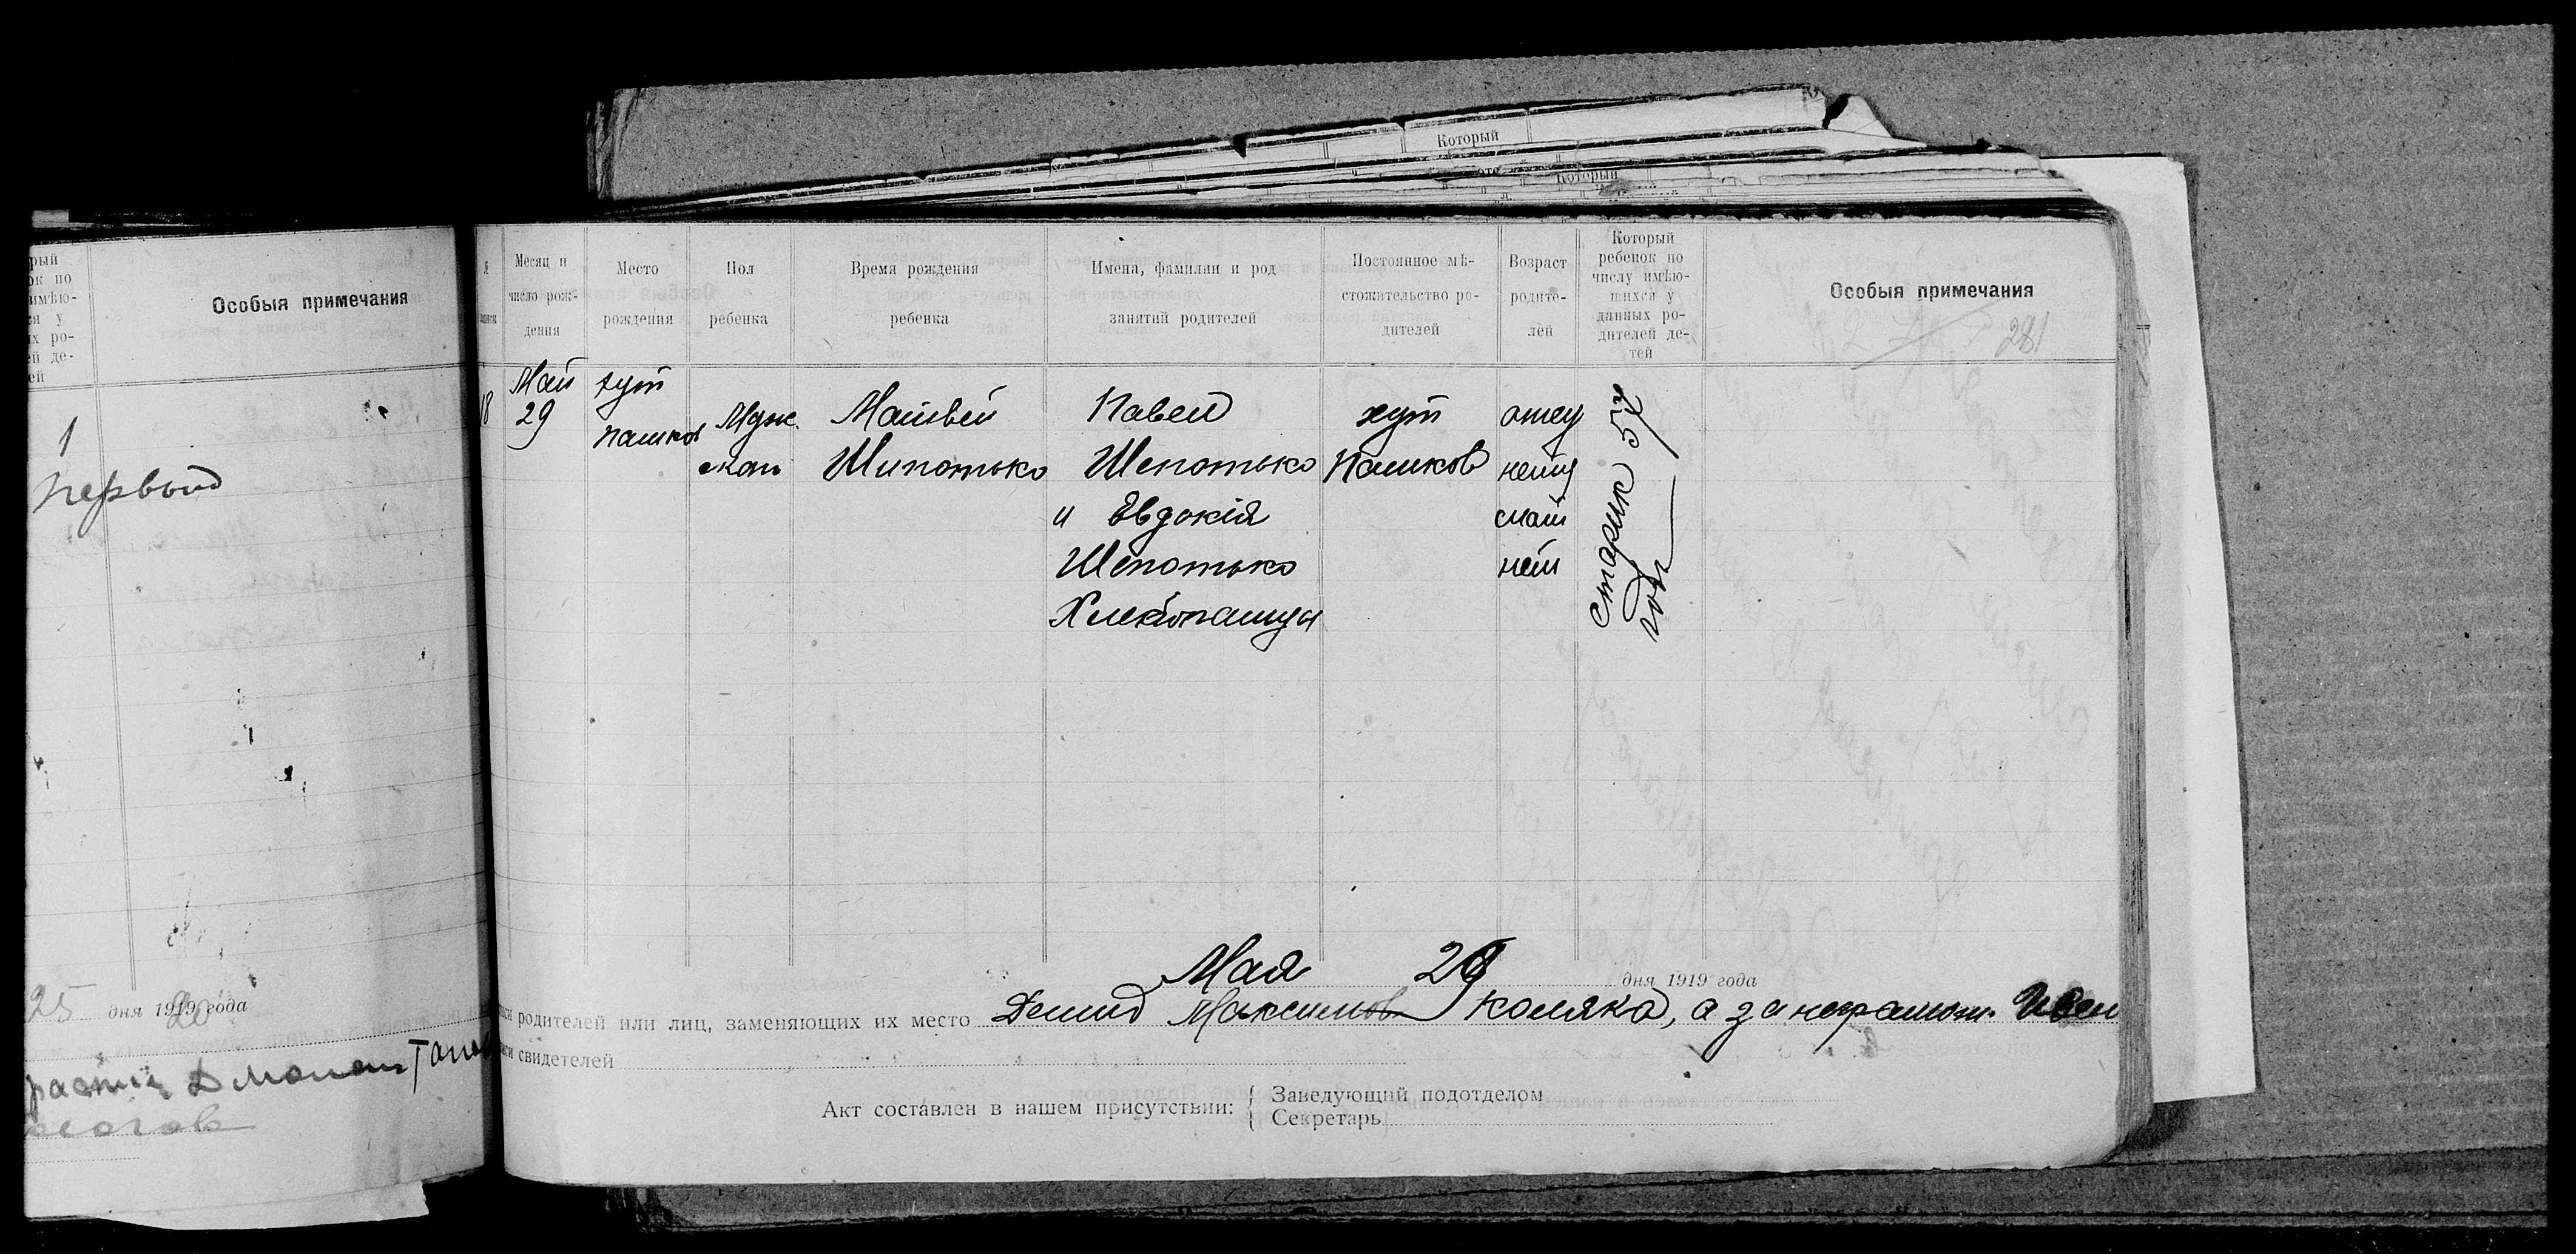 Который
Который
рый
ок по
имѣю-
ся у
ых ро-
ей де-
ей
Особыя примечания
1
первый
25 дня 1919 года
№
Месяц и
число рож-
дения
Место
рождения
Пол
ребенка
Время рождения
ребенка
Имена, фамилии и род
занятий родителей
Постоянное мѣ-
стожительство ро-
дителей
Возраст
родите-
лей
Который
ребенок по
числу имѣю-
щихся у
данных ро-
дителей де-
тей
Особыя примечания
281
18
Май
29
хут
Пашков
Муж.
ской
Матвей
Шипотько
Павел
Шепотько
и Евдокія
Шепотько
Хлебопашцы
хут
Пашков
отцу
нету
мат
нет
старик 57
год
Мая 29 дня 1919 года
родителей или лиц, заменяющих их место Демид Максимов Коляка, а за неграмотн. Иван
свидетелей
Акт составлен в нашем присутствии:
Заведующий подотделом
Секретарь